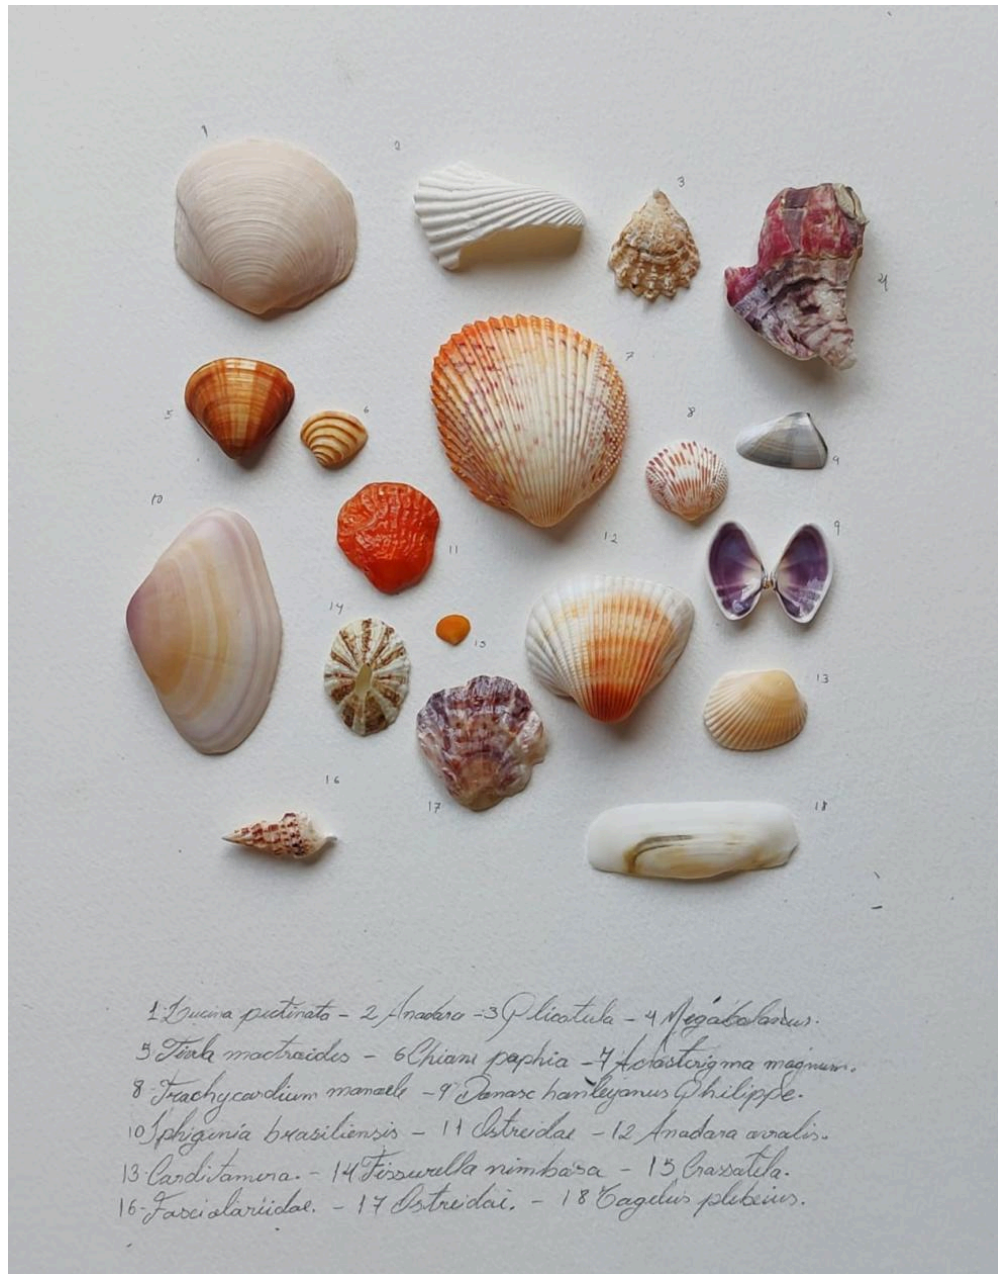 1
2
3
4
7
5
6
8
9
10
11
12
9
14
15
13
16
17
18
1-Lucina pectinata - 2 Anadara - 3 Plicatula - 4 Megabalanus.
5-Tivela mactroides - 6 Chione paphia - 7 Acrosterigma magnum.
8-Trachycardium - 9 Donax hanleyanus Philippe.
10 Iphigenia brasiliensis - 11 Ostreidae - 12 Anadara ovalis.
13-Carditamera. - 14 Fissurella nimbosa - 15 Crassatela.
16-Fasciolariidae. - 17 Ostreidae. - 18 Tagelus plebeius.